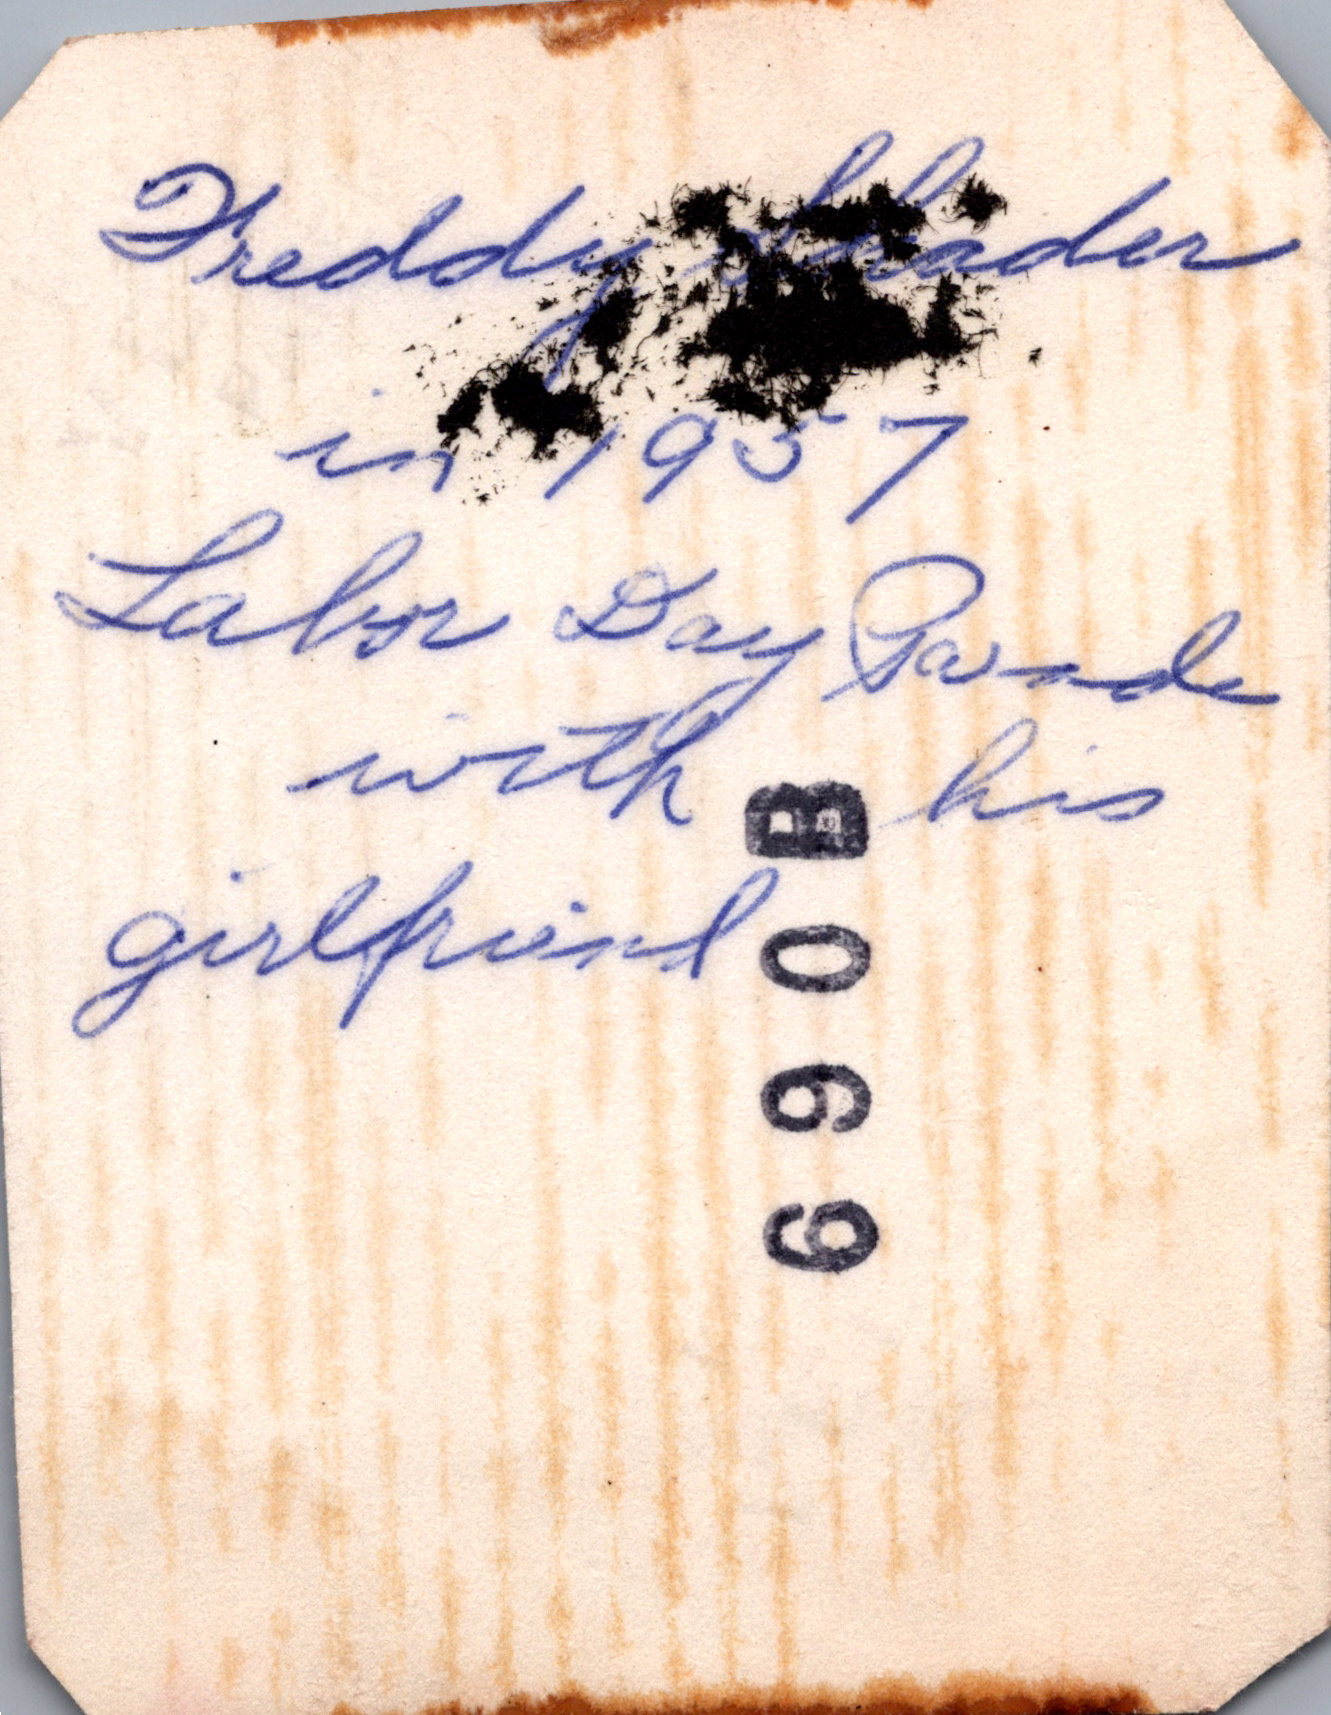 Freddy Shader
in 1957
Labor Day Parade
with his
girlfriend
690B